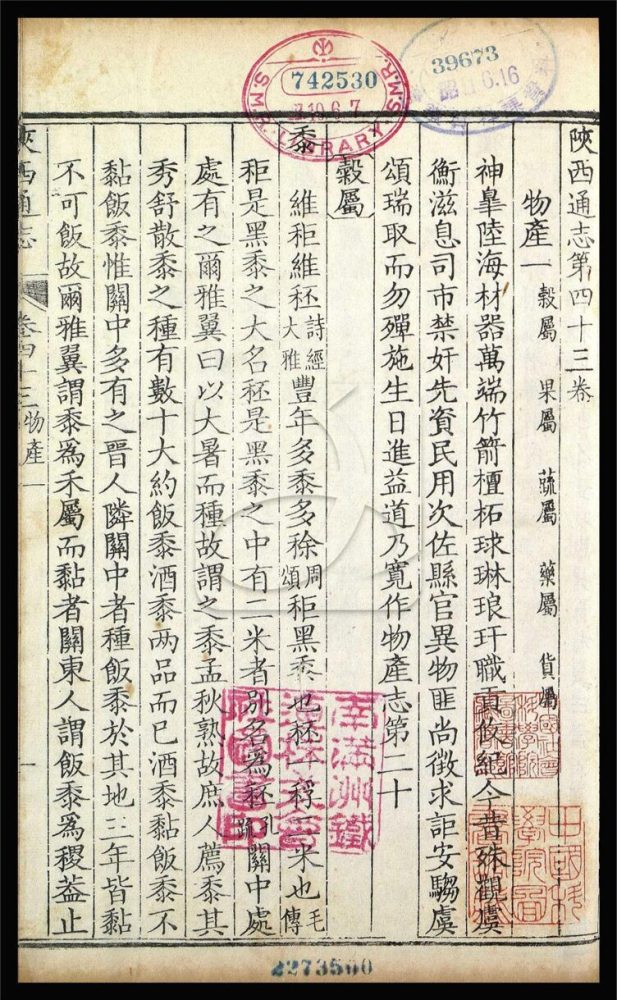 742530
S.M.R. LIBRARY S.M.R.
39673
6.16
陝西通志第四十三卷
物產一 穀屬 果屬 蔬屬 藥屬 貨屬
神皐陸海材器萬端竹箭檀柘球琳琅玕職貢攸紀今昔殊觀虞
衡滋息司市禁奸先資民用次佐縣官異物匪尚徵求詎安騶虞
頌瑞取而勿殫施生日進益道乃寬作物產志第二十
穀屬
黍 維秬維秠詩經大雅豐年多黍多稌周頌秬黑黍也秠一稃二米也毛傳
秬是黑黍之大名秠是黑黍之中有二米者別名為秠孔疏關中處
處有之爾雅翼曰以大暑而種故謂之黍孟秋熟故庶人薦黍其
秀舒散黍之種有數十大約飯黍酒黍两品而已酒黍黏飯黍不
黏飯黍惟關中多有之晋人隣關中者種飯黍於其地三年皆黏
不可飯故爾雅翼謂黍為禾屬而黏者關東人謂飯黍為稷葢止
陝西通志 卷四十三 物產一 一
南滿洲鐵
2273500